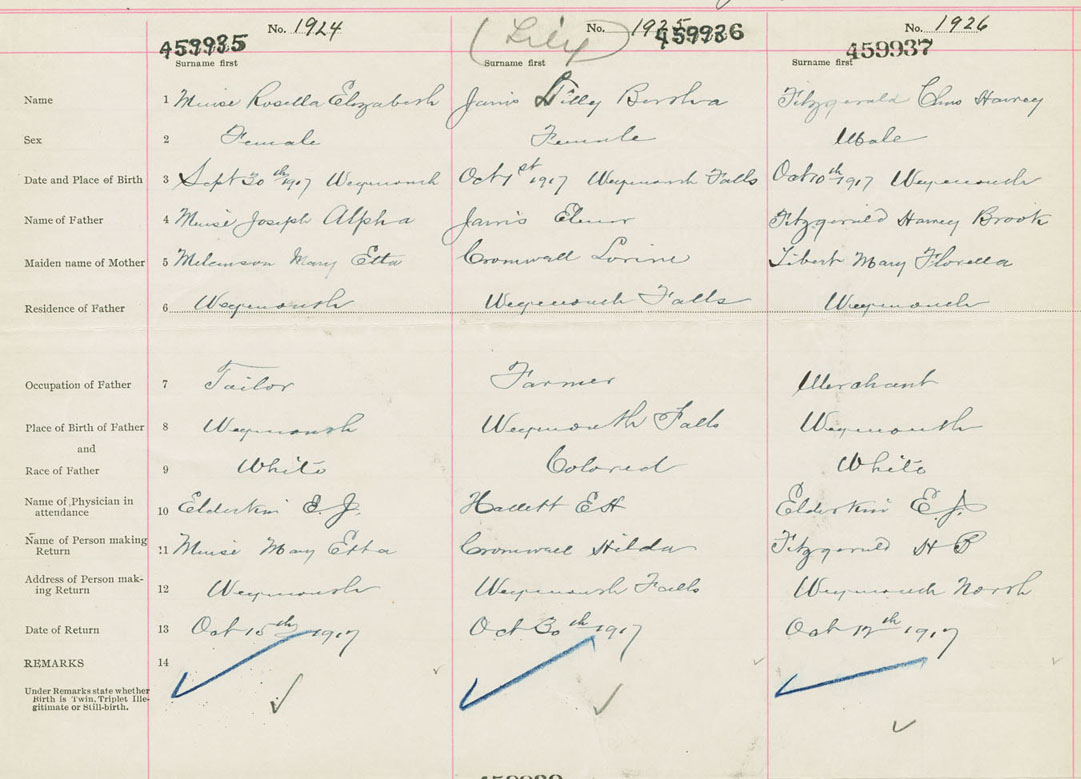 No. 1924
459935
Surname first
(Lily)
No. 1925
459936
Surname first
No. 1926
459937
Surname first
Name 1 Muise Rosella Elizabeth Jarvis Lilly Bertha Fitzgerald Chas Harvey
Sex 2 Female Female Male
Date and Place of Birth 3 Sept 30th 1917 Weymouth Oct 1st 1917 Weymouth Falls Oct 10th 1917 Weymouth
Name of Father 4 Muise Joseph Alpha Jarvis Elmer Fitzgerald Harvey Brook
Maiden name of Mother 5 Melanson Mary Etta Cromwell Lorine Tibert Mary Florella
Residence of Father 6 Weymouth Weymouth Falls Weymouth
Occupation of Father 7 Tailor Farmer Merchant
Place of Birth of Father 8 Weymouth Weymouth Falls Weymouth
and
Race of Father 9 White Colored White
Name of Physician in
attendance 10 Elderkin E. J. Hallett E H Elderkin E. J.
Name of Person making
Return 11 Muise Mary Etta Cromwell Hilda Fitzgerald H B
Address of Person mak-
ing Return 12 Weymouth Weymouth Falls Weymouth North
Date of Return 13 Oct 15th 1917 Oct 30th 1917 Oct 12th 1917
REMARKS 14
Under Remarks state whether
Birth is Twin, Triplet Ille-
gitimate or Still-birth.